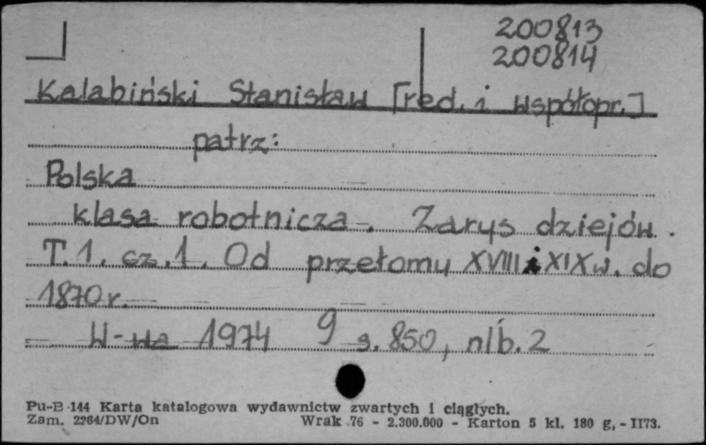 200813
200814
Kalabiński Stanisław [red. i współopr.]
patrz:
Polska
klasa robotnicza. Zarys dziejów.
T.1. cz.1. Od przełomu XVIII i XIX w. do
1870 r.
W-wa 1974 s. 850, nlb. 2
Pu-B 144 Karta katalogowa wydawnictw zwartych i ciągłych.
Zam. 2264/DW/On Wrak 76 - 2.300.000 - Karton 5 kl. 180 g, - II73.